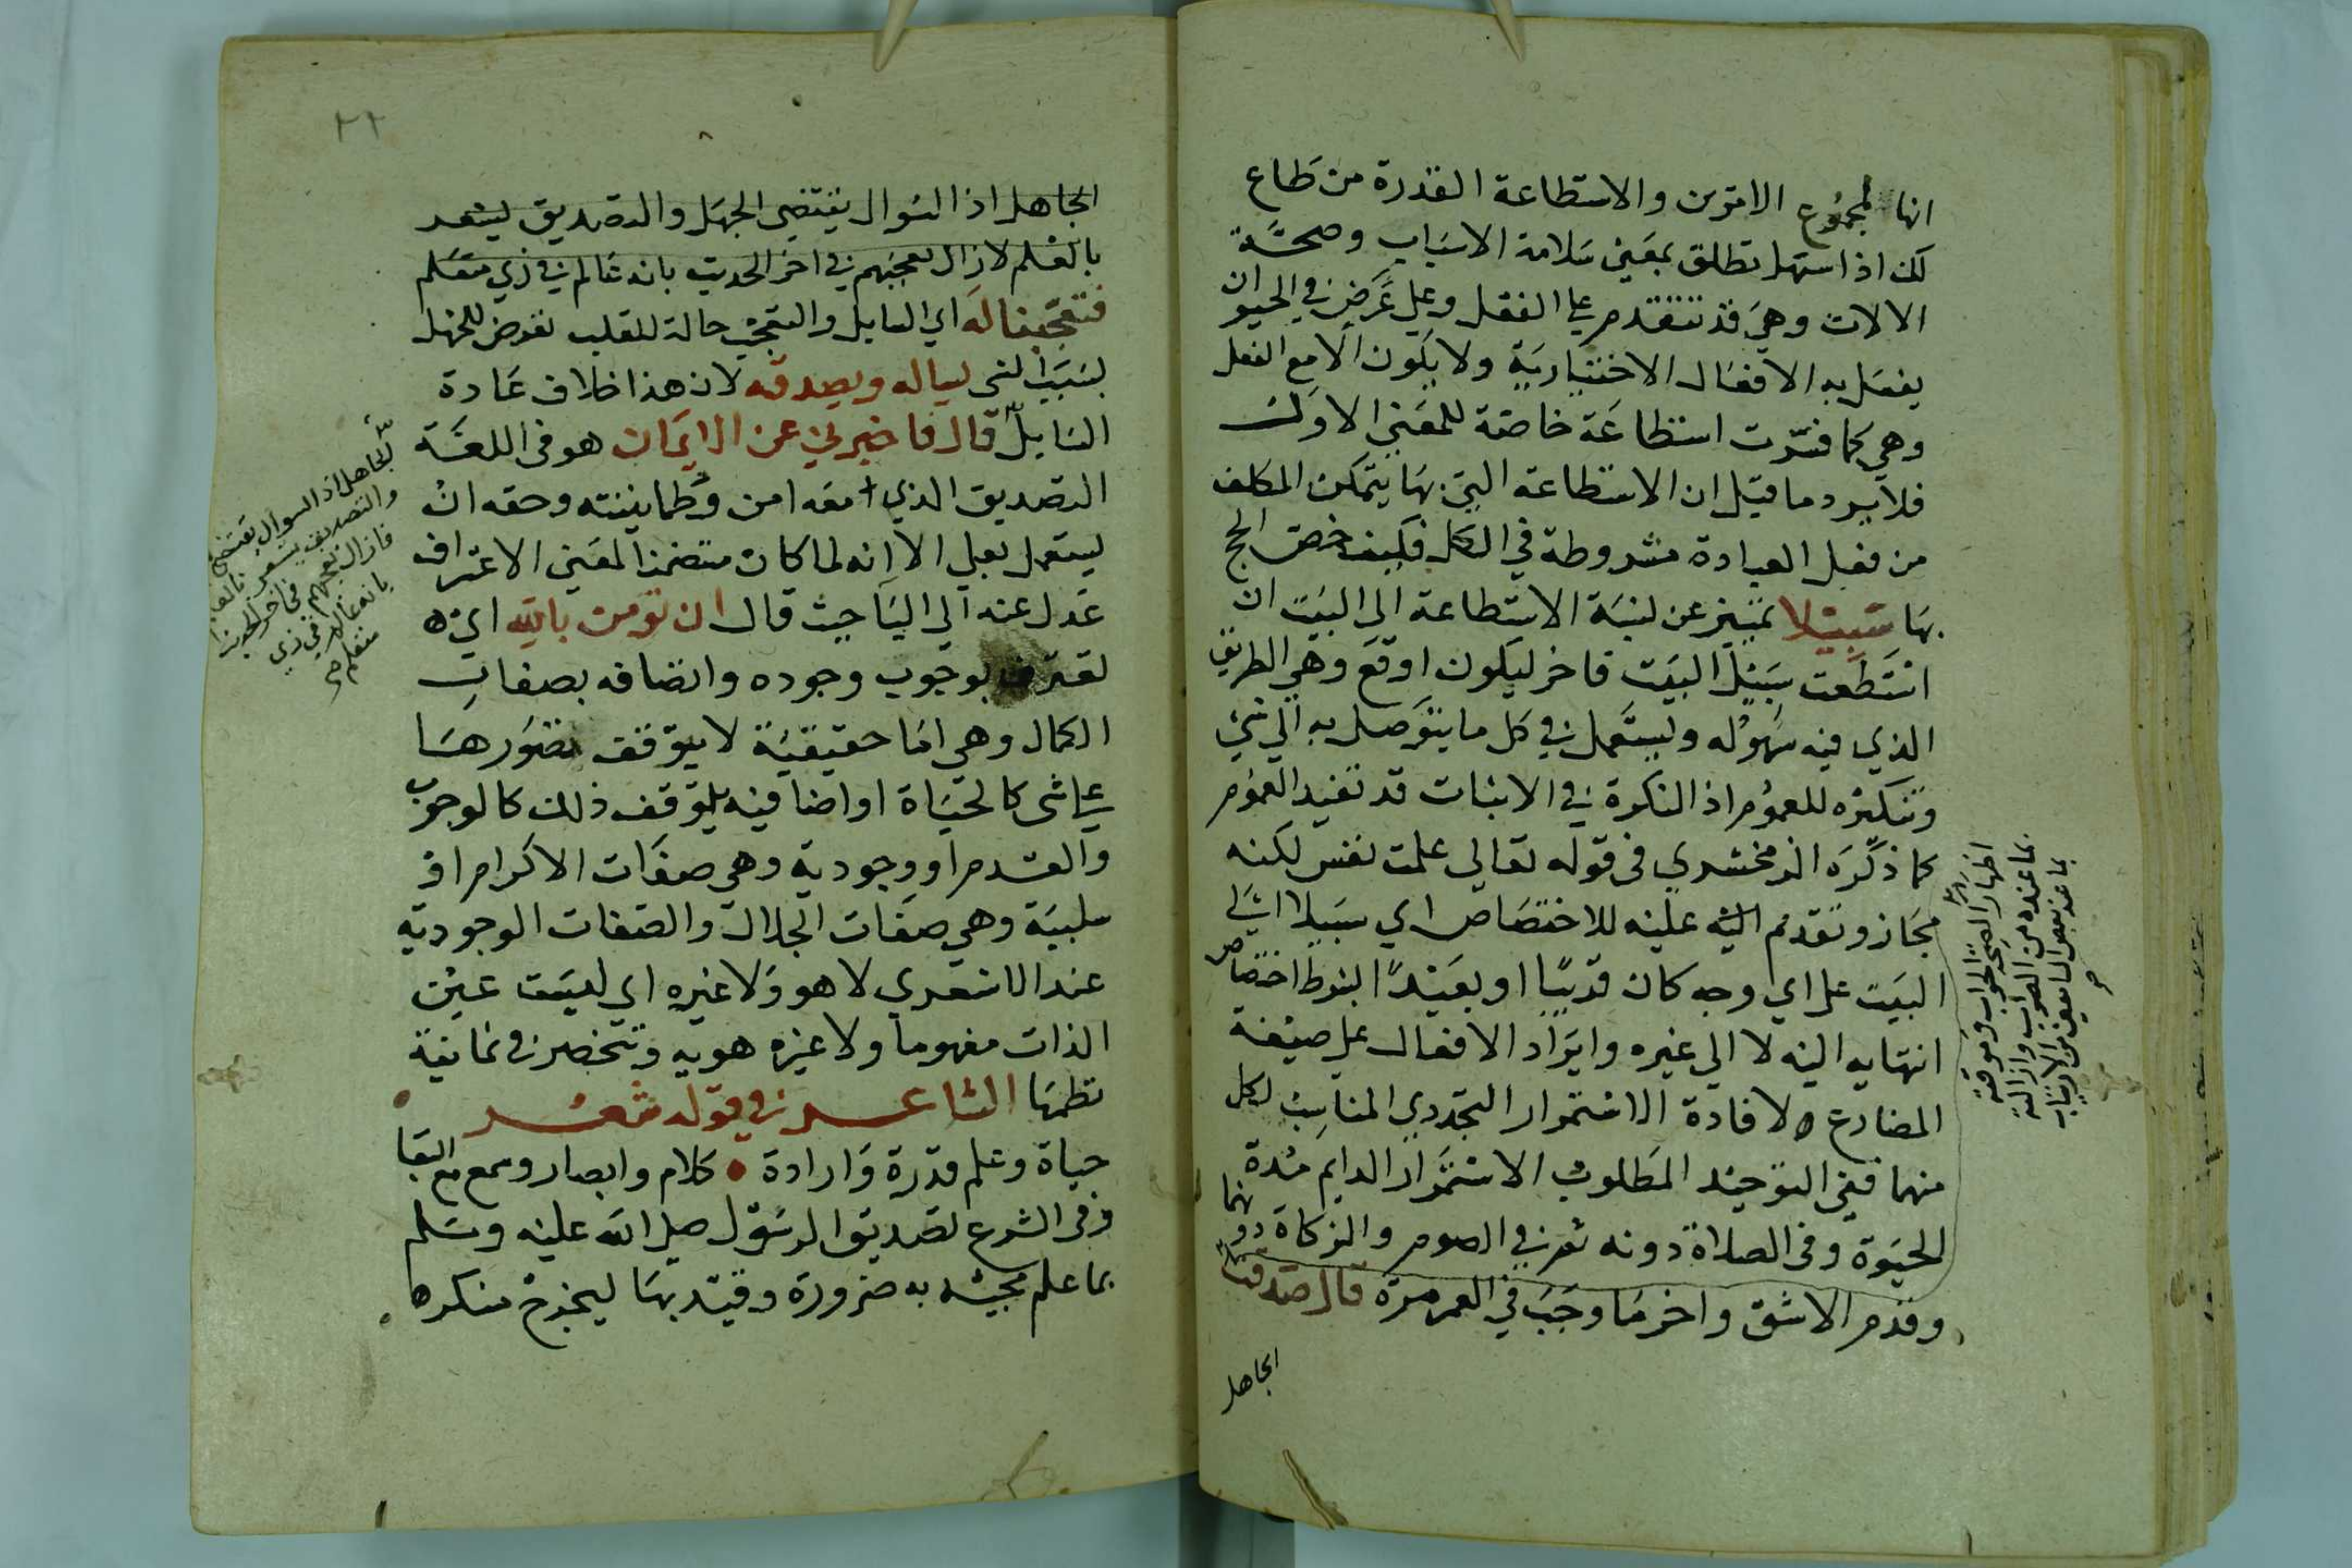 انها لمجموع الامرين والاستطاعة القدرة من طاع
لك اذا سهل تطلق بمعنى سلامة الاسباب وصحة
الالات وهي قد تتقدم على الفعل وعلى عرض في الحيوان
يفعل به الافعال الاختيارية ولا يكون الا مع الفعل
وهي كما فسرت استطاعة خاصة للمعنى الاول
فلا يرد ما قيل ان الاستطاعة التي بها يتمكن المكلف
من فعل العبادة مشروطة في الكل فكيف خص الحج
بها سبيلا تمييز عن نسبة الاستطاعة الى البيت ان
استطعت سبيل البيت فاخر ليكون اوقع وهي الطريق
الذي فيه سهوله ويستعمل في كل ما يتوصل به الى شي
وتنكيره للعموم اذ النكرة في الاثبات قد تفيد العموم
كما ذكره الزمخشري في قوله تعالى علمت نفس لكنه
مجاز وتقدم اليه عليه للاختصاص اي سبيلا الى
البيت على اي وجه كان قريبا او بعيدا بشرط اختصاص
انتهايه اليه لا الى غيره وايراد الافعال على صيغة
المضارع لافادة الاستمرار التجددي المناسب لكل
منها ففي التوحيد المطلوب الاستمرار الدايم مدة
الحيوة وفي الصلاة دونه ثم في الصوم والزكاة دونها
وقدم الاشق واخر ما وجب في العمر مرة قال صدقت
الجاهل
اظهارا لصحة الجواب وموافقة
بما عنده من الصواب وازالة
بما عند بعض السامعين من الارتياب
صح
٢٢
الجاهل اذ السوال يقتضي الجهل والتصديق يشعر
بالعلم لازال تعجبهم في اخر الحديث بانه عالم في زي متعلم
فتعجبنا له اي السايل والتعجب حالة للقلب تعرض للجهل
بسبب الشي يساله ويصدقه لان هذا خلاف عادة
السايل قال فاخبرني عن الايمان هو في اللغة
التصديق الذي معه امن وطمانينته وحقه ان
يستعمل بعلى الا انه لما كان متضمنا لمعنى الاعتراف
عدل عنه الى البا حيث قال ان تومن بالله اي
تعترف بوجوب وجوده واتصافه بصفات
الكمال وهي اما حقيقية لا يتوقف تصورها
على شي كالحياة او اضافية يتوقف ذلك كالوجوب
والقدم او وجودية وهي صفات الاكرام او
سلبية وهي صفات الجلال والصفات الوجودية
عند الاشعري لا هو ولا غيره اي ليست عين
الذات مفهوما ولا غيره هوية وتنحصر في ثمانية
نظمها الشاعر في قوله شعر
حياة وعلم قدرة وارادة • كلام وابصار وسمع مع البقا
وفي الشرع تصديق الرسول صلى الله عليه وسلم
بما علم مجيئه به ضرورة وقيد بها ليخرج منكره
الجاهل اذ السوال يقتضي
والتصديق يشعر بالعلم
فازال تعجبهم في اخر الحديث
بانه عالم في زي
متعلم صح